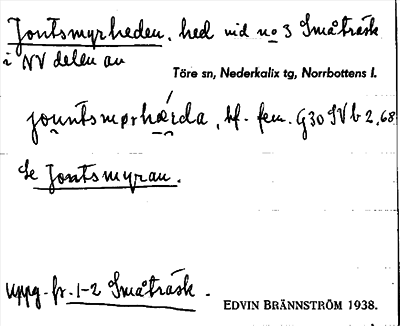 Jontsmyrheden, hed vid no 3 Småträsk
i NV delen av
Töre sn, Nederkalix tg, Norrbottens l.
jountsmørhæida, bf. fem. G30 IV b 2,68
Se Jontsmyran.
uppg. fr. 1-2 Småträsk.
EDVIN BRÄNNSTRÖM 1938.